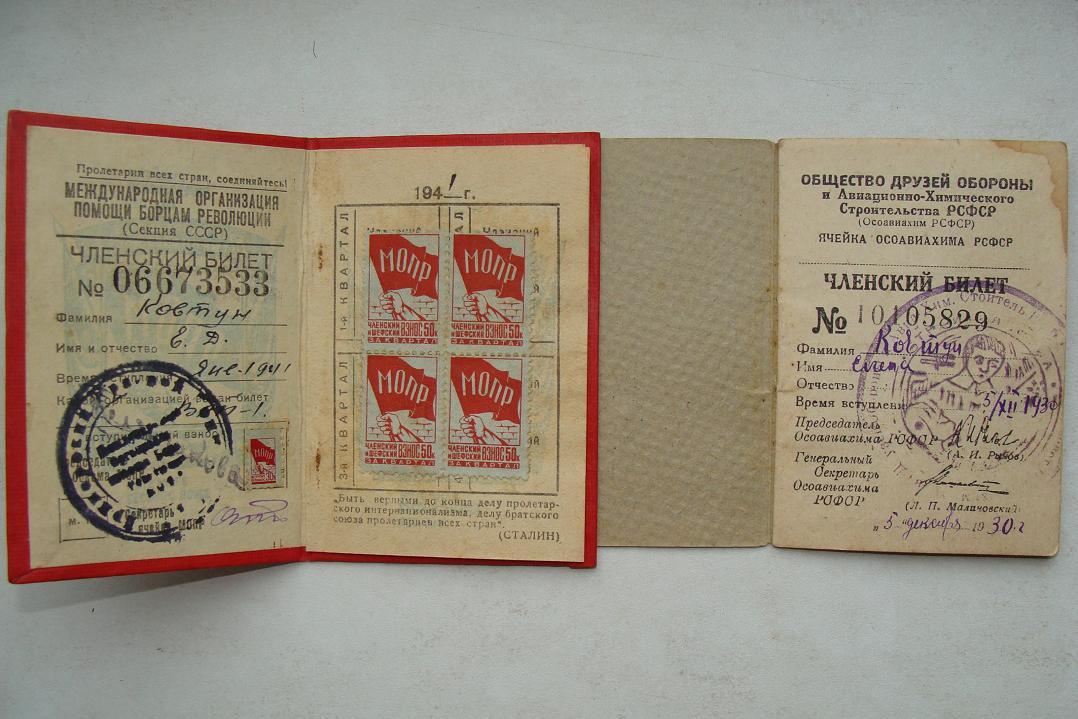 Пролетарии всех стран, соединяйтесь!
МЕЖДУНАРОДНАЯ ОРГАНИЗАЦИЯ
ПОМОЩИ БОРЦАМ РЕВОЛЮЦИИ
(Секция СССР)
ЧЛЕНСКИЙ БИЛЕТ
№ 06673533
Фамилия Ковтун
Имя и отчество Е. Д.
Время
билет
взнос
Секретарь
ячейки МОПР
МОПР
1941 г.
1-й КВАРТАЛ
3-й КВАРТАЛ
МОПР
ЧЛЕНСКИЙ И ШЕФСКИЙ ВЗНОС 50к
ЗА КВАРТАЛ
МОПР
ЧЛЕНСКИЙ И ШЕФСКИЙ ВЗНОС 50к
ЗА КВАРТАЛ
МОПР
ЧЛЕНСКИЙ И ШЕФСКИЙ ВЗНОС 50к
ЗА КВАРТАЛ
МОПР
ЧЛЕНСКИЙ И ШЕФСКИЙ ВЗНОС 50к
ЗА КВАРТАЛ
„Быть верными до конца делу пролетар-
ского интернационализма, делу братского
союза пролетариев всех стран".
(СТАЛИН)
ОБЩЕСТВО ДРУЗЕЙ ОБОРОНЫ
и Авиационно-Химического
Строительства РСФСР
(Осоавиахим РСФСР)
ЯЧЕЙКА ОСОАВИАХИМА РСФСР
ЧЛЕНСКИЙ БИЛЕТ
№ 10105829
Фамилия Ковтун
Имя
Отчество
Время вступлени 5/XII 1930
Председатель
Осоавиахима РСФСР
(А. И. Рыков)
Генеральный
Секретарь
Осоавиахима
РСФСР
(Л. П. Малиновский)
„5" декабря 1930 г